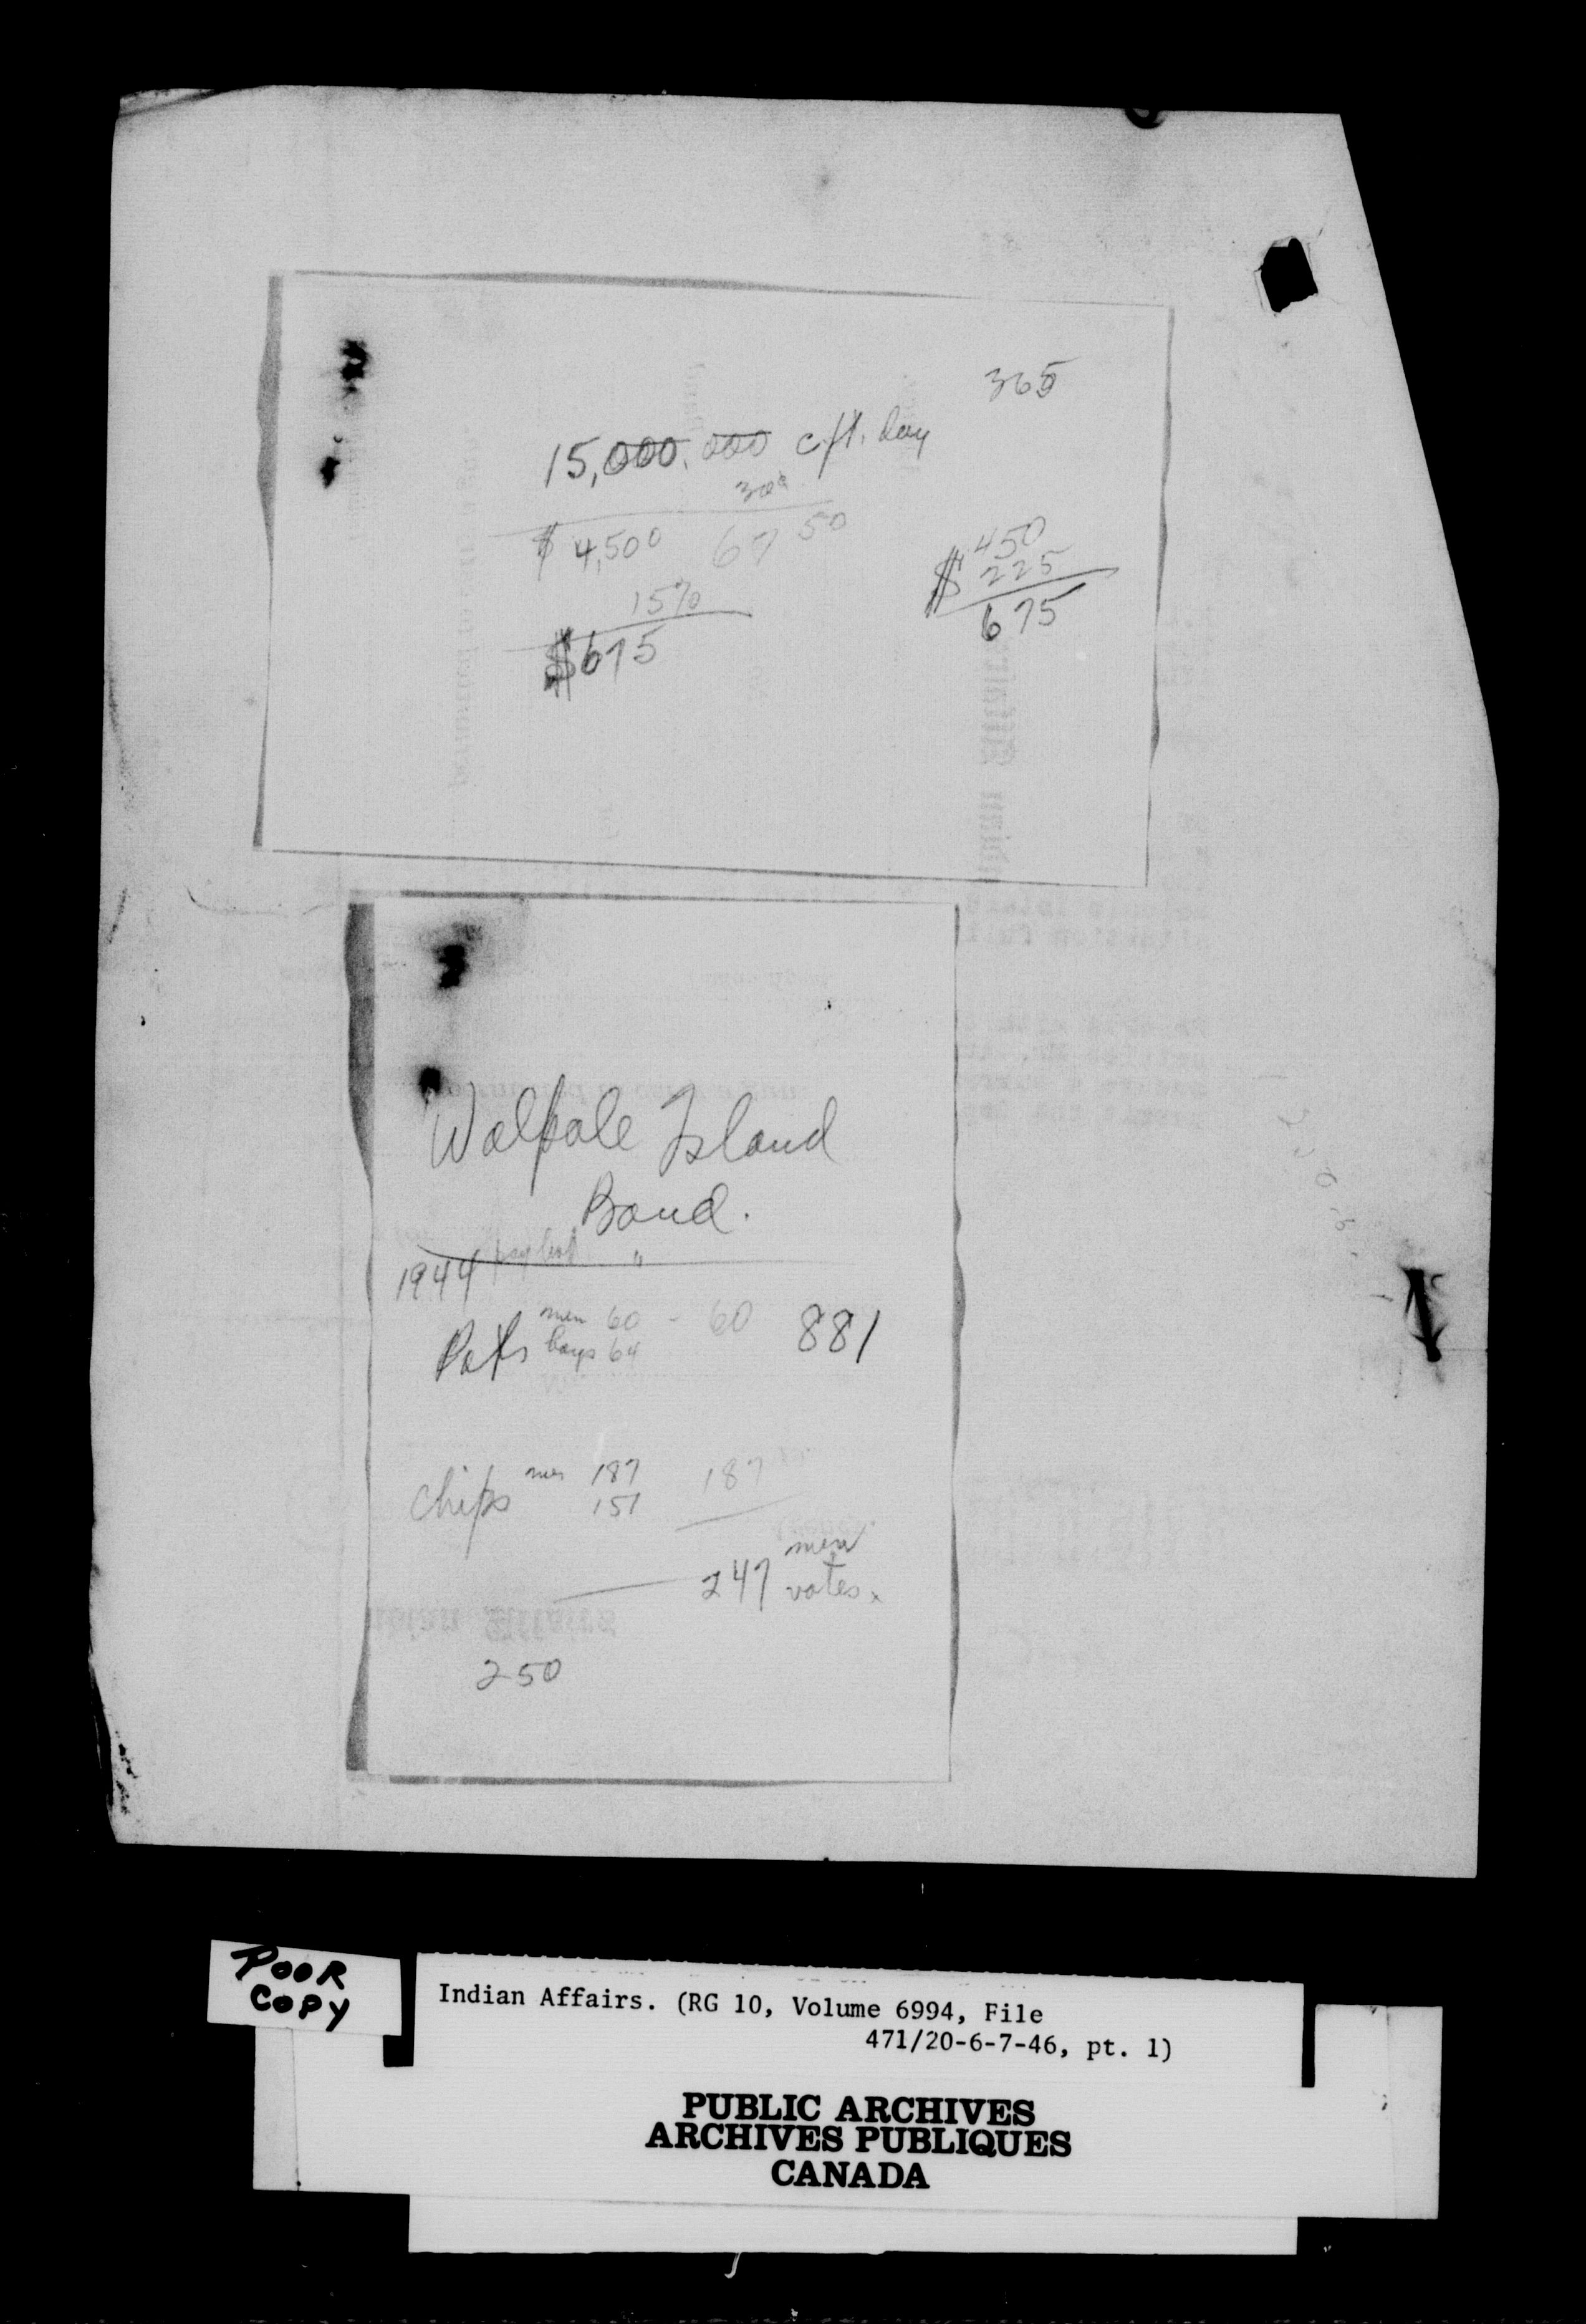 365
15,000,000 c ft. day
30¢
$ 4,500 67 50
15%
$675
450
$ 225
675
Walpole Island
Band.
1944 pay list "
Pots men 60 - 60 881
boys 64
Chips men 187 187
151
men
247 votes.
250
POOR
COPY
Indian Affairs. (RG 10, Volume 6994, File
471/20-6-7-46, pt. 1)
PUBLIC ARCHIVES
ARCHIVES PUBLIQUES
CANADA